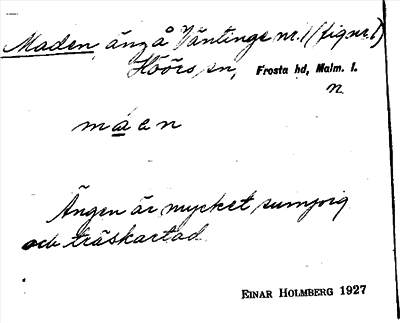 Maden, äng å Väntinge nr. 1 (fig nr. 1)
Höörs sn, Frosta hd, Malm. l.
n
maen
Ängen är mycket sumpig
och träskartad.
EINAR HOLMBERG 1927